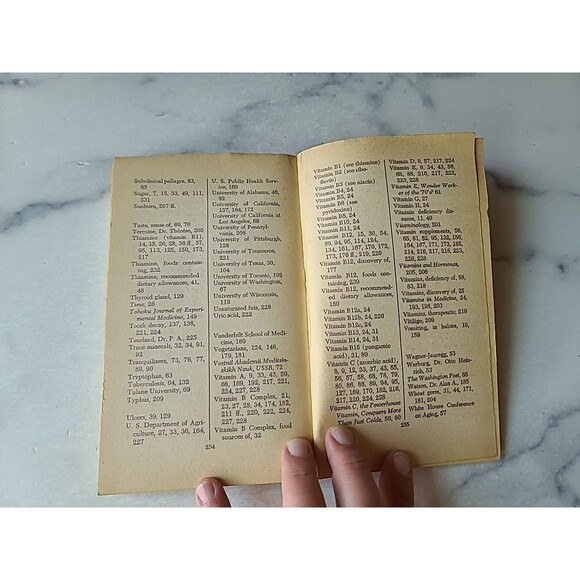 Subclinical pellagra, 83,
85
Sugar, 7, 15, 33, 49, 111,
231
Sunburn, 207 ff.
Taste, sense of, 69, 70
Terroine, Dr. Thérèse, 205
Thiamine (vitamin B1),
14, 15, 26, 28, 36 ff., 57,
95, 113, 125, 150, 173,
217
Thiamine, foods contain-
ing, 232
Thiamine, recommended
dietary allowances, 41,
48
Thyroid gland, 129
Time, 26
Tohoku Journal of Experi-
mental Medicine, 149
Tooth decay, 137, 138,
221, 224
Toreland, Dr. F. A., 225
Trace minerals, 32, 34, 91,
92
Tranquilizers, 73, 76, 77,
89, 90
Tryptophan, 63
Tuberculosis, 64, 132
Tulane University, 69
Typhus, 209
Ulcers, 39, 129
U. S. Department of Agri-
culture, 27, 33, 36, 164,
227
U. S. Public Health Serv-
ice, 189
University of Alabama, 46,
82
University of California,
137, 164, 172
University of California at
Los Angeles, 68
University of Pennsyl-
vania, 208
University of Pittsburgh,
128
University of Tennessee,
221
University of Texas, 30,
104
University of Toronto, 192
University of Washington,
67
University of Wisconsin,
119
Unsaturated fats, 228
Uric acid, 222
Vanderbilt School of Medi-
cine, 169
Vegetarians, 124, 148,
179, 181
Vestnil Akademii Meditsin-
skikh Nauk, USSR, 72
Vitamin A, 9, 33, 43, 59,
68, 169, 192, 217, 221,
224, 227, 228
Vitamin B Complex, 21,
23, 27, 28, 34, 174, 182,
211 ff., 220, 222, 224,
227, 228
Vitamin B Complex, food
sources of, 32
254
Vitamin B1 (see thiamine)
Vitamin B2 (see ribo-
flavin)
Vitamin B3 (see niacin)
Vitamin B4, 24
Vitamin B5, 24
Vitamin B6 (see
pyridoxine)
Vitamin B8, 24
Vitamin B10, 24
Vitamin B11, 24
Vitamin B12, 15, 30, 54,
89, 94, 95, 114, 124,
134, 161, 167, 170, 172,
173, 176 ff., 219, 228
Vitamin B12, discovery of,
177
Vitamin B12, foods con-
taining, 239
Vitamin B12, recommend-
ed dietary allowances,
180
Vitamin B12a, 24
Vitamin B12b, 24, 228
Vitamin B12c, 24
Vitamin B13, 24, 31
Vitamin B14, 24, 31
Vitamin B15 (pangamic
acid), 31, 89
Vitamin C (ascorbic acid),
8, 9, 12, 33, 37, 43, 55,
56, 57, 58, 68, 78, 79,
80, 86, 88, 89, 94, 95,
127, 169, 180, 182, 216,
217, 220, 224, 228
Vitamin C, the Powerhouse
Vitamin, Conquers More
Than Just Colds, 56, 80
Vitamin D, 9, 57, 217, 224
Vitamin E, 9, 34, 43, 58,
68, 88, 216, 217, 221,
223, 228
Vitamin E, Wonder Work-
er of the 70's? 61
Vitamin G, 27
Vitamin H, 24
Vitamin deficiency dis-
eases, 11, 40
Vitaminology, 201
Vitamin supplements, 58,
65, 81, 82, 95, 132, 156,
164, 167, 171, 173, 182,
183, 218, 220, 223, 224,
227, 228
Vitamins and Hormones,
205, 206
Vitamins, deficiency of, 58,
83, 218
Vitamins, discovery of, 25
Vitamins in Medicine, 24,
193, 198, 203
Vitamins, therapeutic, 219
Vitiligo, 209
Vomiting, in babies, 19,
159
Wagner-Jauregg, 53
Warburg, Dr. Otto Hein-
rich, 53
The Washington Post, 65
Watson, Dr. Alan A., 185
Wheat germ, 31, 44, 171,
181, 204
White House Conference
on Aging, 57
255